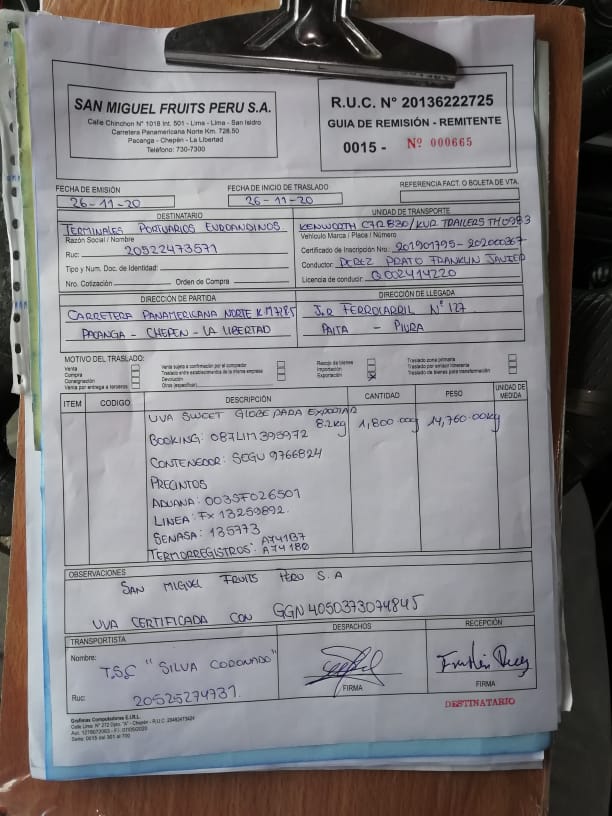 SAN MIGUEL FRUITS PERU S.A.
Calle Chinchon N° 1018 Int. 501 - Lima - Lima - San Isidro
Carretera Panamericana Norte Km. 728.50
Pacanga - Chepén - La Libertad
Teléfono: 730-7300
R.U.C. N° 20136222725
GUIA DE REMISIÓN - REMITENTE
0015 - Nº 000665
FECHA DE EMISIÓN
26-11-20
FECHA DE INICIO DE TRASLADO
26-11-20
REFERENCIA FACT. O BOLETA DE VTA.
DESTINATARIO
TERMINALES PORTUARIOS EUROANDINOS
Razón Social / Nombre
Ruc: 20522473571
Tipo y Num. Doc. de Identidad:
Nro. Cotización: Orden de Compra
UNIDAD DE TRANSPORTE
KENWORTH C7R830/KUR TRAILERS TH0983
Vehículo Marca / Placa / Número
Certificado de Inscripción Nro.: 201901795-20200067
Conductor: PEREZ PRATO FRANKLIN JAVIER
Licencia de conducir: Q002414220
DIRECCIÓN DE PARTIDA
CARRETERA PANAMERICANA NORTE KM 7285
PACANGA - CHEPEN - LA LIBERTAD
DIRECCIÓN DE LLEGADA
J.R FERROCARRIL N° 127
PAITA - PIURA
MOTIVO DEL TRASLADO:
Venta
Compra
Consignación
Venta por entrega a terceros
Venta sujeta a confirmación por el comprador
Traslado entre establecimientos de la misma empresa
Devolución
Otros (especificar)
Recojo de bienes
Importación
Exportación X
Traslado zona primaria
Traslado por emisor itinerante
Traslado de bienes para transformación
ITEM CODIGO DESCRIPCIÓN CANTIDAD PESO UNIDAD DE MEDIDA
UVA SWEET GLOBE PARA EXPORTAR
8.2kg 1,800.00 14,760.00kg
BOOKING: 087LIM395972
CONTENEDOR: SEGU 9766824
PRECINTOS
ADUANA: 003SF026501
LINEA: FX 13259892
SENASA: 135773
TERMORREGISTROS: A74137
A74180
OBSERVACIONES
SAN MIGUEL FRUITS PERU S.A
UVA CERTIFICADA CON GGN 4050373074845
TRANSPORTISTA
Nombre: T.S.C "SILVA CORONADO"
Ruc: 20525274737
DESPACHOS
FIRMA
RECEPCIÓN
FIRMA
DESTINATARIO
Graficas Computadoras E.I.R.L.
Serie: 0015 del 501 al 700